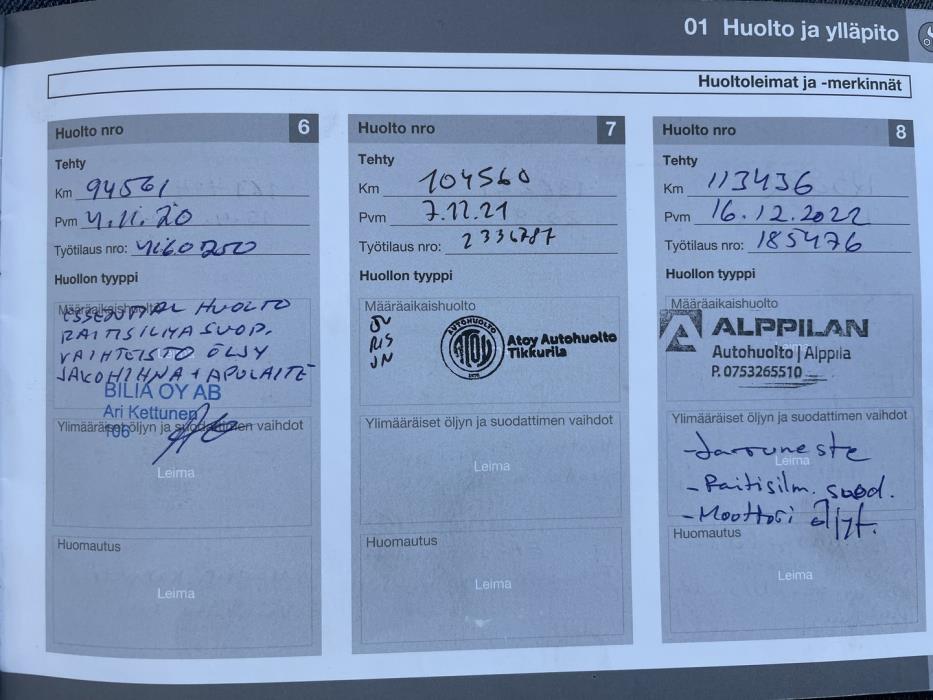 01 Huolto ja ylläpito
Huoltoleimat ja -merkinnät
Huolto nro 6
Tehty
Km 94561
Pvm 4.11.20
Työtilaus nro:
Huollon tyyppi
Määräaikaishuolto
ESSENTIAL HUOLTO
RAITISILMASUOD.
VAIHTEISTO ÖLJY
JAKOHIHNA + APULAITE
BILIA OY AB
Ari Kettunen
106
Ylimääräiset öljyn ja suodattimen vaihdot
Leima
Huomautus
Leima
Huolto nro 7
Tehty
Km 104560
Pvm 7.12.21
Työtilaus nro: 2336787
Huollon tyyppi
Määräaikaishuolto
ÖV
RIS
JN
AUTOHUOLTO
ATOY
Atoy Autohuolto
Tikkurila
Ylimääräiset öljyn ja suodattimen vaihdot
Leima
Huomautus
Leima
Huolto nro 8
Tehty
Km 113436
Pvm 16.12.2022
Työtilaus nro: 185476
Huollon tyyppi
Määräaikaishuolto
ALPPILAN
Autohuolto | Alppila
P. 0753265510
Ylimääräiset öljyn ja suodattimen vaihdot
Leima
- Jarruneste
- Raitisilm. suod.
- Moottori öljyt.
Huomautus
Leima